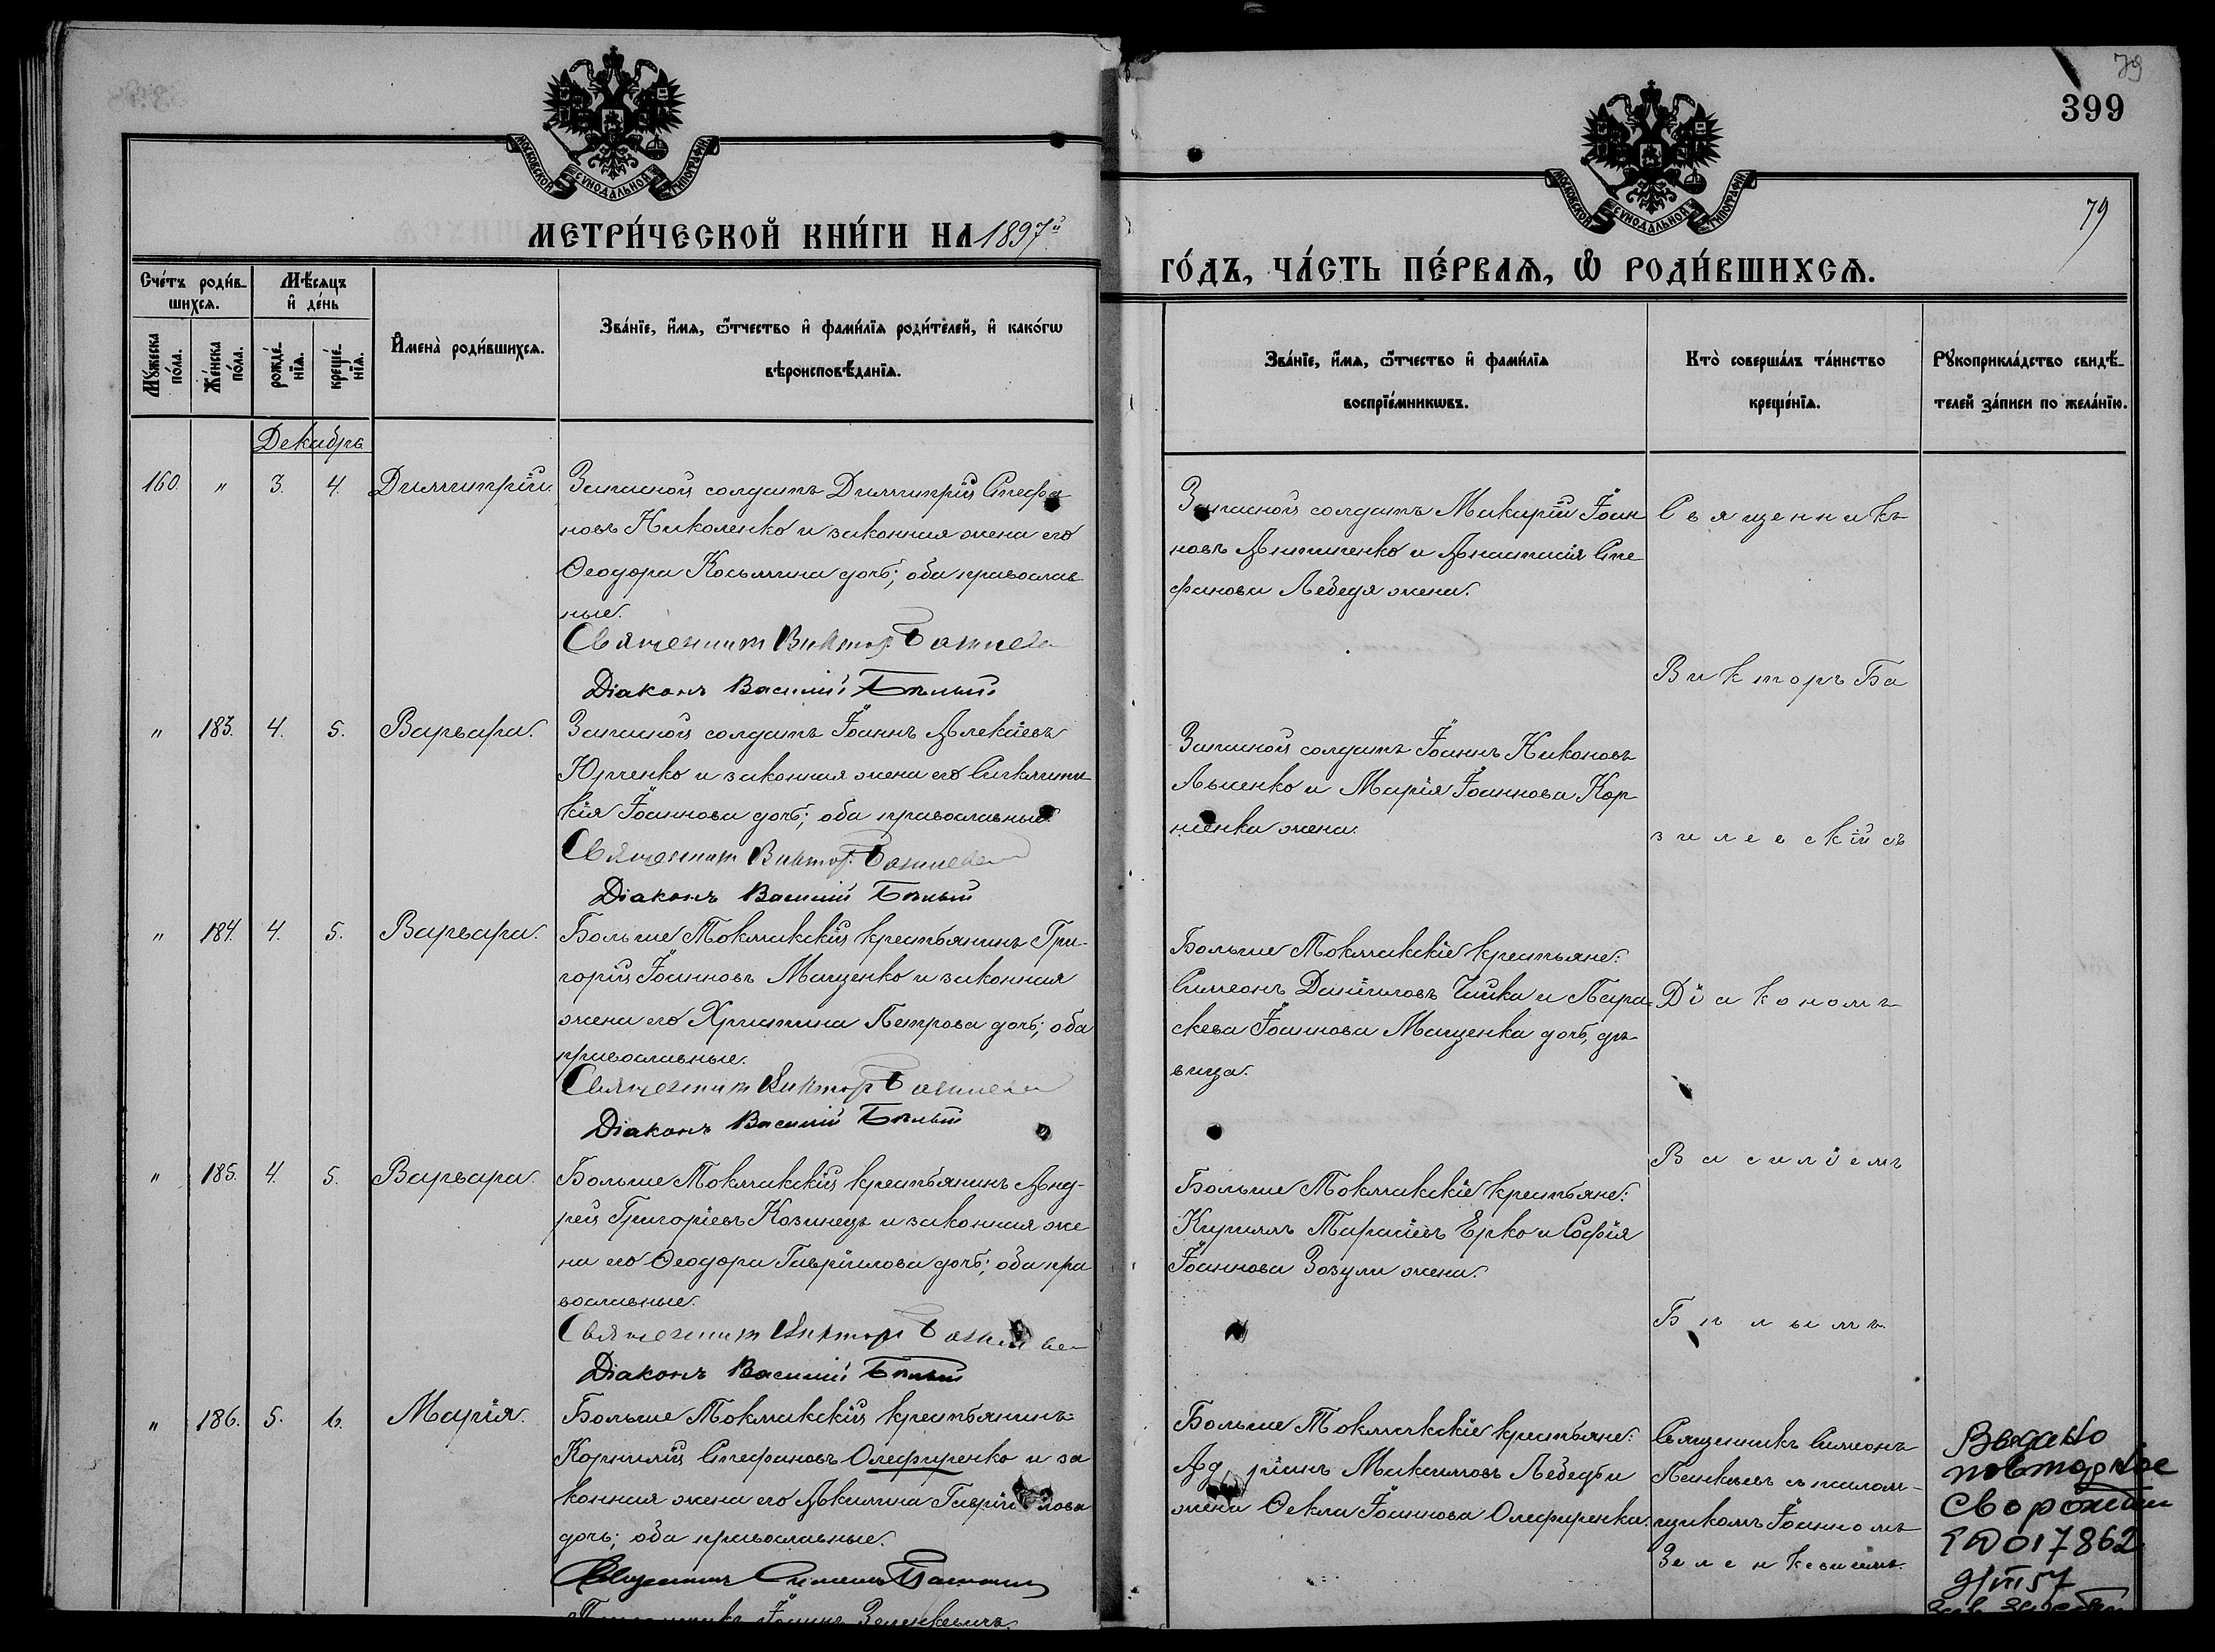 79
399
79
МОСКОВСКОЙ СѴНОДАЛЬНОЙ ТИПОГРАФІИ
МОСКОВСКОЙ СѴНОДАЛЬНОЙ ТИПОГРАФІИ
МЕТРИ́ЧЕСКОЙ КНИ́ГИ НА 1897й
ГО́ДЪ, ЧА́СТЬ ПЕ́РВАѦ, Ѡ РОДИ́ВШИХСѦ.
Сче́тъ роди́в-
шихсѧ.
Мѣ́сяцъ
и де́нь
Мꙋжеска
по́ла.
Же́нска
по́ла.
рожде́-
нїѧ.
креще́-
нїѧ.
Имена̀ роди́вшихсѧ.
Зва́нїе, и́мѧ, ѻ́тчество и фами́лїѧ роди́телей, и како́гѡ
вѣроисповѣ́данїѧ.
Зва́нїе, и́мѧ, ѻ́тчество и фами́лїѧ
воспрїе́мникѡвъ.
Кто̀ соверша́лъ та́инство
креще́нїѧ.
Рꙋкоприкла́дство свидѣ́-
телей за́писи по жела́нїю.
Декабрь
160. " 3. 4. Димитрій.
Запасной солдатъ Димитрій Стефа
новъ Николенко и законная жена его
Ѳеодора Косьмина дочь; оба православ
ные.
Священник Виктор
Діаконъ Василій Бѣлый
Запасной солдатъ Макарій Іоан
новъ Антипенко и Анастасія Сте
фанова Лебедя жена.
Священникъ
Викторъ Ба
зилевскій съ
Діакономъ
Василіемъ
Бѣлымъ
" 183. 4. 5. Варвара.
Запасной солдатъ Іоаннъ Алексіевъ
Юрченко и законная жена его Сигклити
кія Іоаннова дочь; оба православные.
Священник Виктор
Діаконъ Василій Бѣлый
Запасной солдатъ Іоаннъ Никоновъ
Лысенко и Марія Іоаннова Кор
ніенка жена.
" 184. 4. 5. Варвара.
Больше Токмакскій крестьянинъ Гри-
горій Іоанновъ Мащенко и законная
жена его Христина Петрова дочь; оба
православные.
Священник Виктор
Діаконъ Василій Бѣлый
Больше Токмакскіе крестьяне:
Симеонъ Даніиловъ Чайка и Пара
скева Іоаннова Мащенка дочь, дѣ
вица.
" 185. 4. 5. Варвара.
Больше Токмакскій крестьянинъ Анд-
рей Григоріевъ Козинецъ и законная же
на его Ѳеодора Гавріилова дочь; оба пра
вославные.
Священник Виктор
Діаконъ Василій Бѣлый
Больше Токмакскіе крестьяне:
Кириллъ Тарасіевъ Ерко и Софія
Іоаннова Зозули жена.
" 186. 5. 6. Марія.
Больше Токмакскій крестьянинъ
Корнилій Стефановъ Олефиренко и за
конная жена его Акилина Гавріилова
дочь; оба православные.
Священник Симеон
Іоаннъ Зеленкевичъ
Больше Токмакскіе крестьяне:
Адріанъ Максимовъ Лебедь и
жена Ѳекла Іоаннова Олефиренка.
Священникъ Симеонъ
съ псалом-
щикомъ Іоанномъ
Зеленкевичемъ.
Выдано
повторное
Св о рождении
017862
9/III 57